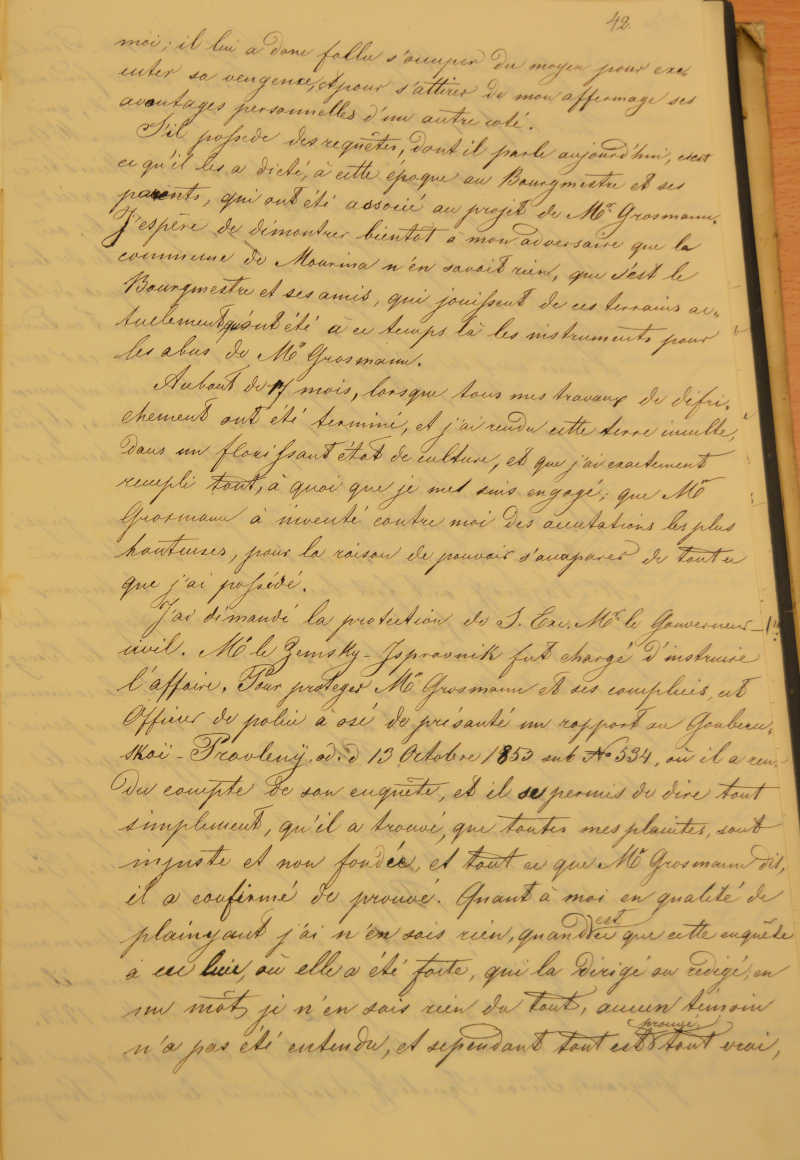 42
moi; il lui a donc fallu s'occuper du moyen pour exé-
cuter sa vengence, et pour s'attirer de mon affermage ses
avantages personnelles d'un autre coté.
S'il possede des requêtes, dont il parle aujourd'hui, c'est
ce qu'il les a dicté, à cette époque au Bourgmestre et ses
parents, qui ont été associé au projet de Mr Grosmann.
J'espère de démontrer bientot à mon adversaire que la
commune de Mourina n'en savait rien, que c'est le
Bourgmestre et ses amis, qui jouissent de ces terrains ac-
tuelement qui ont été à ce temps là les instruments pour
les abus de Mr Grosmann.
Aubout de 17 mois, lorsque tous mes travaux de défri-
chement ont été terminé, et j'ai rendu cette terre inculte,
dans un florissant état de culture, et que j'ai exactement
rempli tout, à quoi que je me suis engagé; que Mr
Grosmann à inventé contre moi des accutations les plus
honteuses, pour la raison de pouvoir s'accaparer de tout ce
que j'ai possédé.
J'ai démandé la protection de S. Exc. Mr le Gouverneur
civil. Mr le Zemsky-Jspravnik fut chargé d'instruire
l'affaire. Pour proteger Mr Grosmann et ses complices, cet
Officier de police à osé de présanté un rapport au Goubern-
skoï-Pravlenÿ, od. d 13 Octobre 1853 sub No 534, où il a ren-
du compte de son enquête, et il se permis de dire tout
simplement, qu'il a trouvé, que toutes mes plaintes, sont
injuste et non fondée, et tout ce que Mr Grosmann dit,
il a confirmé de prouvé. Quant à moi en qualité de
plainyant j'ai n'en sais rien, quand est ce que cette enquête
à eu lieu, où elle a été faite, qui la dirigé ou rédigé, en
un môt, je n'en sais rien du tout, aucun témoin
n'a pas été entendu, et sependant tout est prouvé tout vrai,